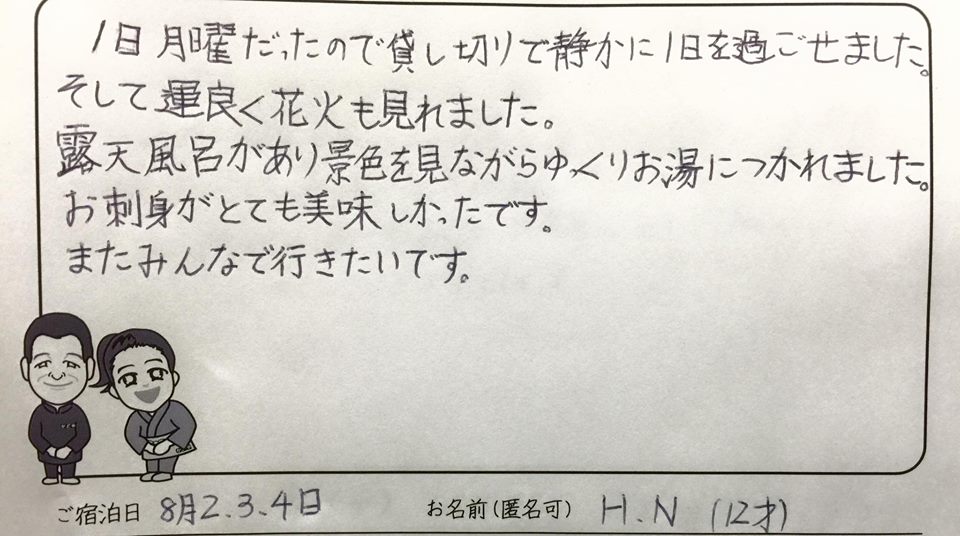 1日月曜だったので貸し切りで静かに1日を過ごせました。
そして運良く花火も見れました。
露天風呂があり景色を見ながらゆっくりお湯につかれました。
お刺身がとても美味しかったです。
またみんなで行きたいです。
ご宿泊日 8月2.3.4日 お名前(匿名可) H.N (12才)